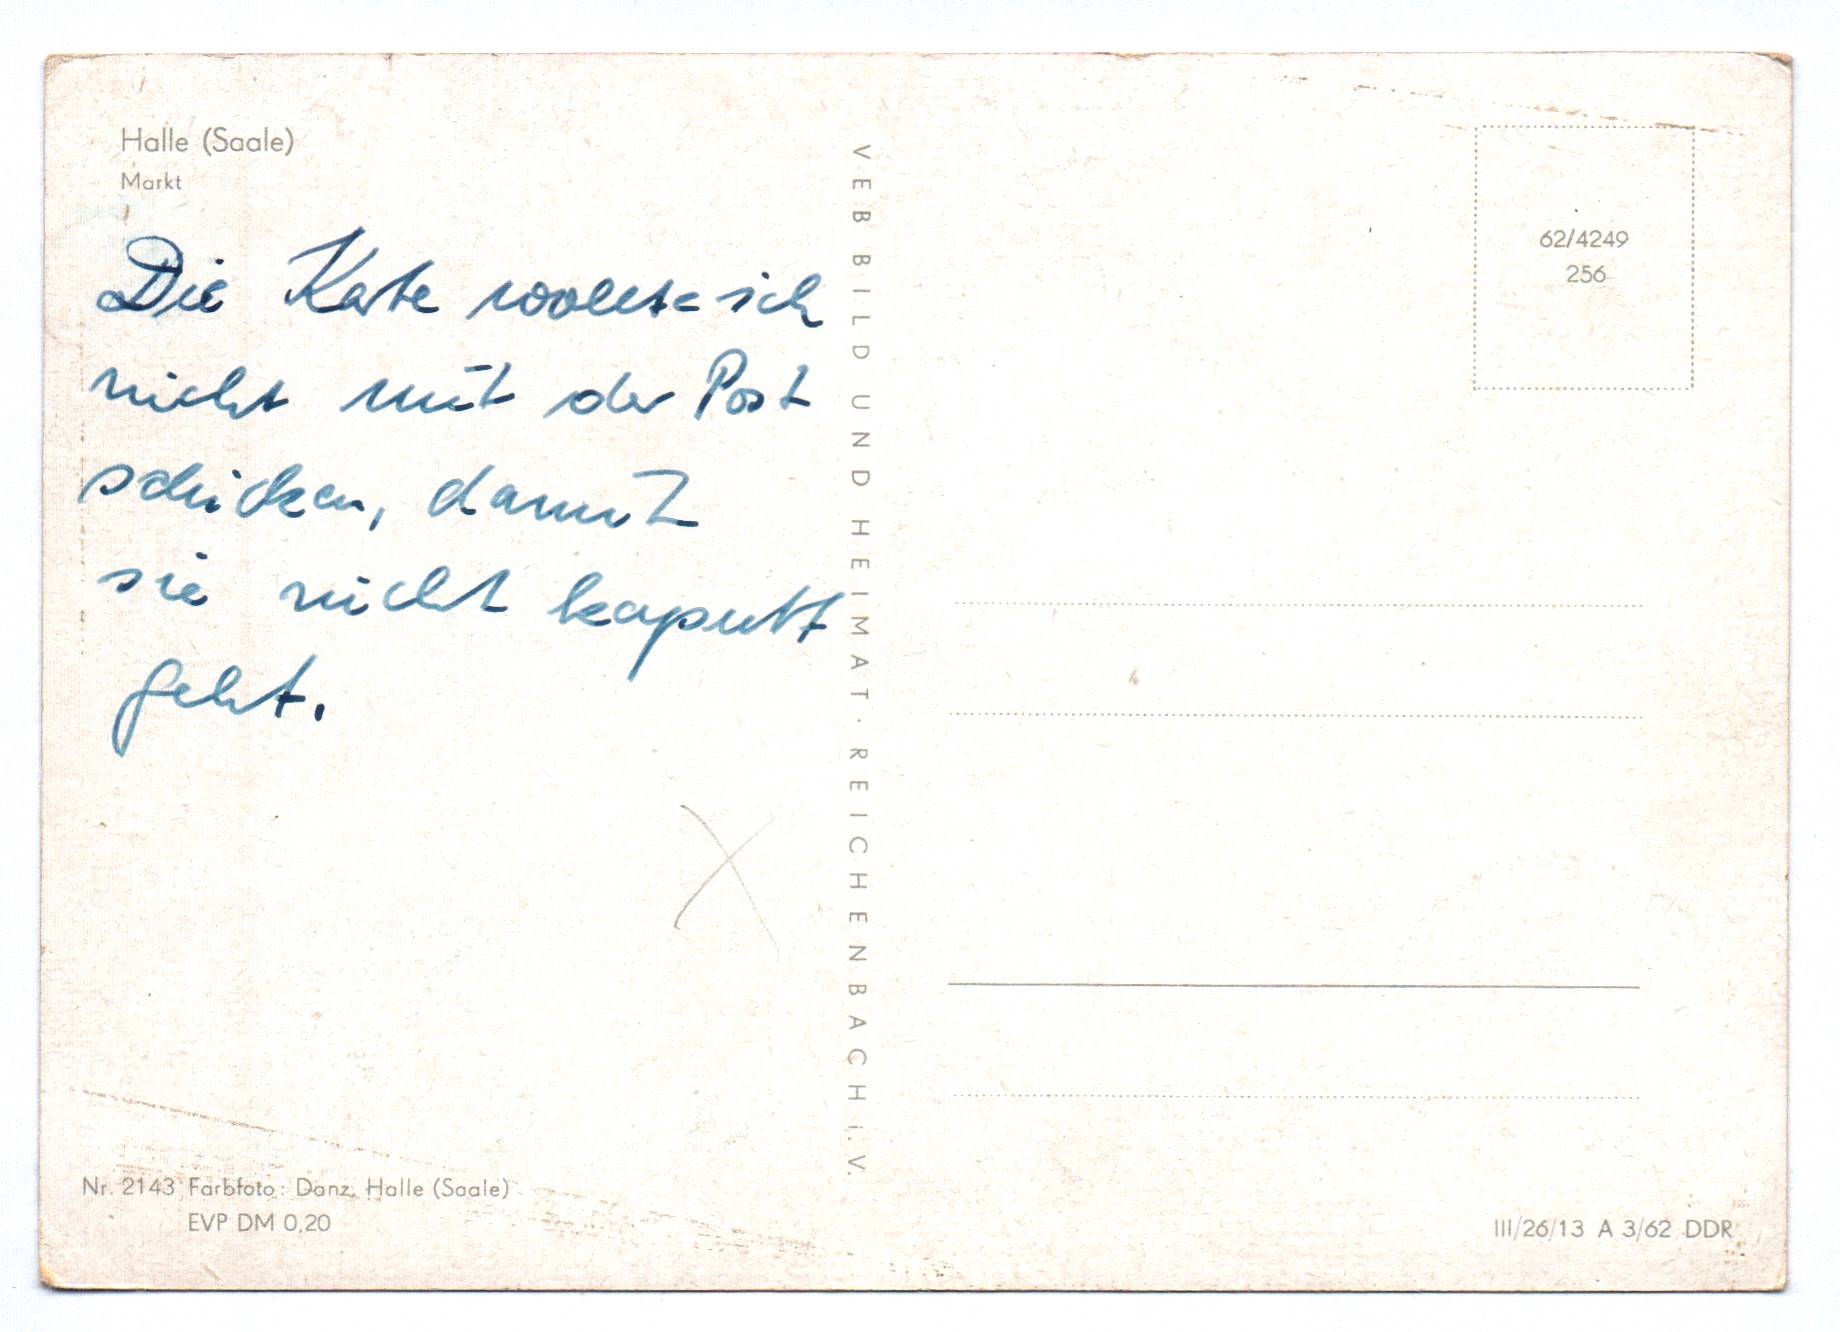 Halle (Saale)
Markt
Die Karte wollte ich
nicht mit der Post
schicken, damit
sie nicht kaputt
geht.
Nr. 2143 Farbfoto: Danz, Halle (Saale)
EVP DM 0,20
VEB BILD UND HEIMAT · REICHENBACH i. V.
62/4249
256
III/26/13 A 3/62 DDR